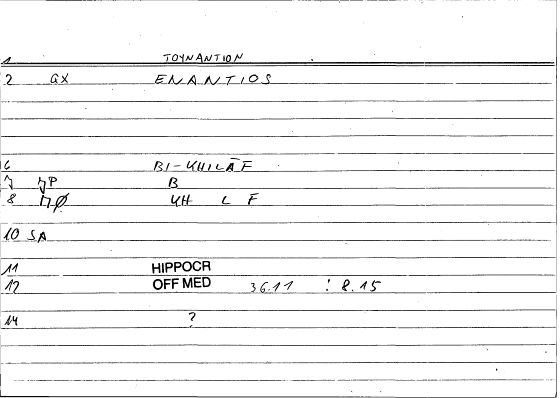 1 TOYNANTION
2 GX ENANTIOS
6 BI-KHILĀF
7 P B
8 Ø KH L F
10 SA
11 HIPPOCR
12 OFF MED 36.11 : 8.15
14 ?